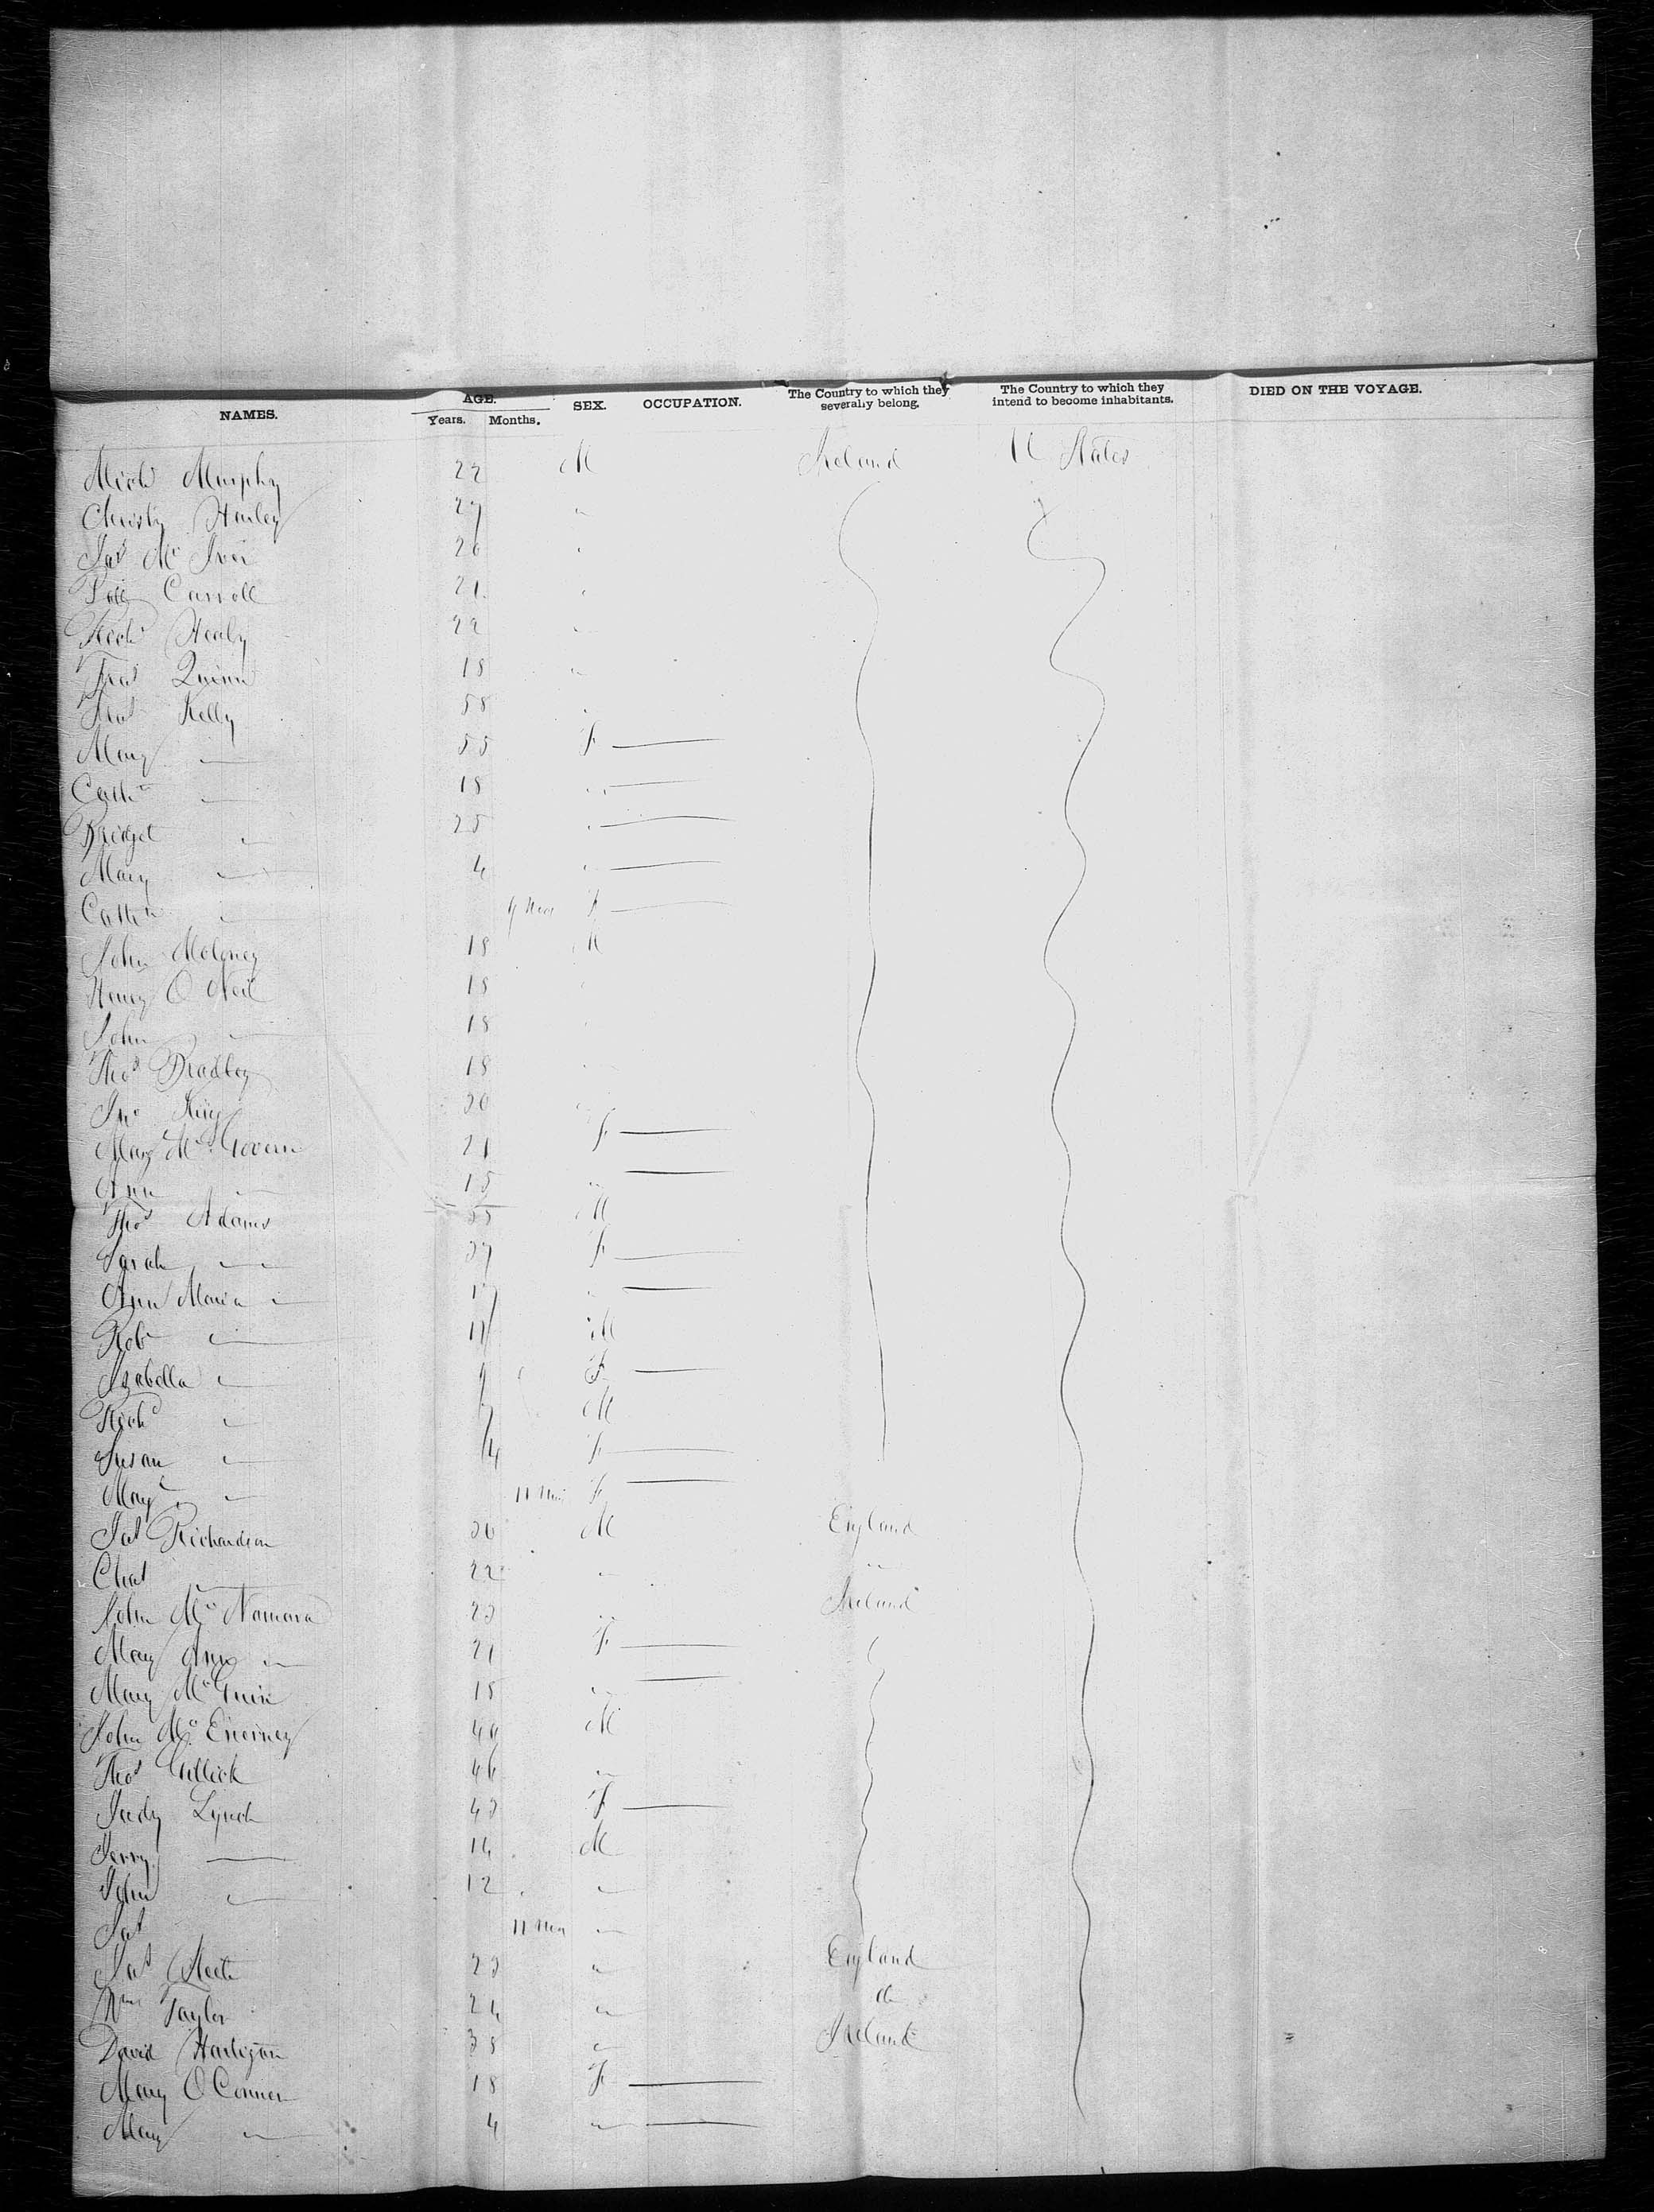 NAMES. AGE. Years. Months. SEX. OCCUPATION. The Country to which they severally belong. The Country to which they intend to become inhabitants. DIED ON THE VOYAGE.
Mich Murphy 22 M Ireland U States
Christy Hanley 27 "
Jas Mc Iver 26 "
Carroll 21 "
Healy 22 "
Quinn 18 "
Kelly 58 "
Mary — 55 F —
Cathe — 18 " —
Bridget — 25 " —
Mary — 4 " —
Cathe — 9 Mos F —
John Moloney 18 M
Henry O Neil 18
John — 18
Thos Bradley 18
Jno King 30
Mary Mc Govern 21 F —
Ann — 15 " —
Thos Adams 35 M
Sarah — 37 F —
Ann Maria — 17 " —
Robt — 11 M
Izabella — 9 F —
Richd — 7 M
Susan — 4 F —
Mary — 11 Mos F —
Jas Richardson 36 M England
Chas — 22 " "
John Mc Namara 23 " Ireland
Mary Ann — 21 F —
Mary Mc Guire 18 " —
John Mc Enerney 40 M
Thos Gillick 46 "
Judy Lynch 43 F —
Jerry — 14 M
John — 12 "
Jas 11 Mos "
Jas 23 " England
Wm Taylor 24 " do
David Hartigan 38 " Ireland
Mary O Connor 18 F —
Mary — 4 " —